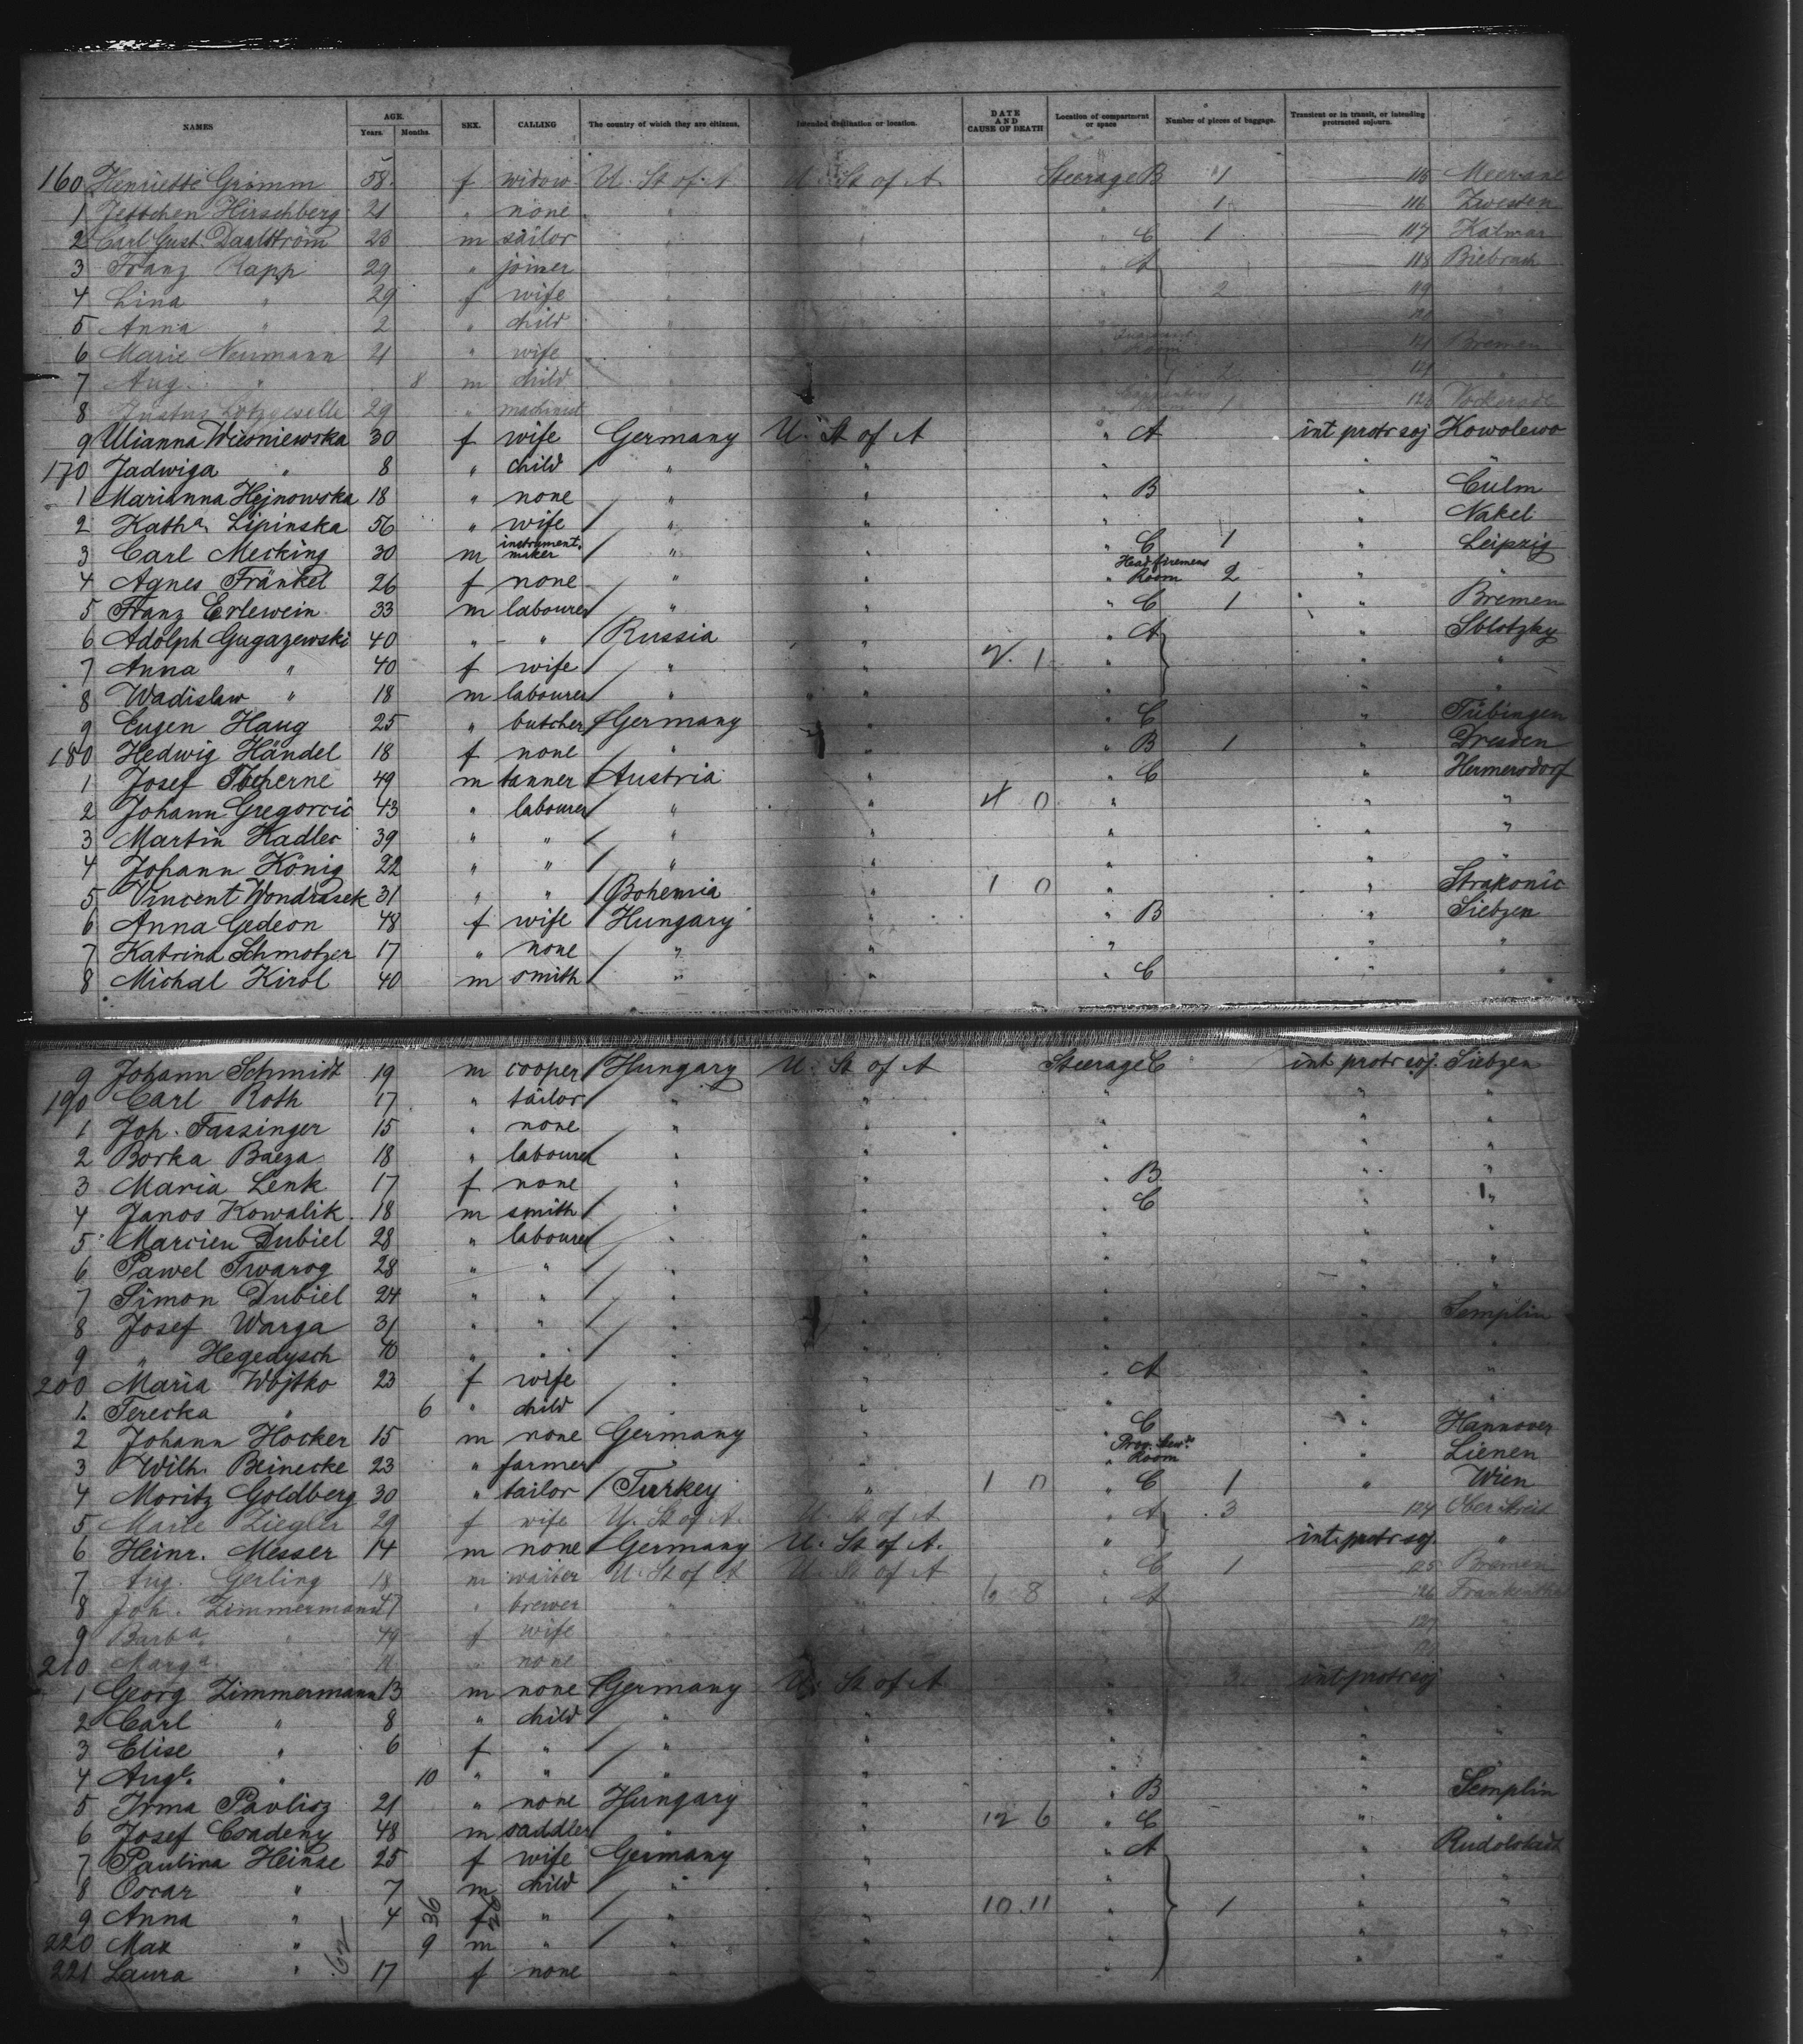 NAMES AGE. Years. Months. SEX. CALLING The country of which they are citizens. Intended destination or location. DATE AND CAUSE OF DEATH Location of compartment or space Number of pieces of baggage. Transient or in transit, or intending protracted sojourn.
160 Henriette Grimm 58 f widow U. St of A U. St of A Steerage B 1 115 Meerane
1 Jettchen Hirschberg 21 " none " " " 1 116 Zwesten
2 Carl Gust. Daalström 23 m sailor " " " C 1 117 Kalmar
3 Franz Rapp 29 " joiner " " " A 118 Biebrach
4 Lina " 29 f wife " " " 2 119 "
5 Anna " 2 " child " " "
6 Marie Neumann 21 " wife " " Room 121 Bremen
7 Aug. " 8 m child " " 2 "
8 Justus 29 " machinist " " 1 Wockerode
9 Ulianna Wiesniewska 30 f wife Germany U. St of A " A int protr soj Kowolewo
170 Jadwiga " 8 " child " " " " "
1 Marianna Hejnowska 18 " none " " " B " Culm
2 Katha Lipinska 56 " wife " " " " Nakel
3 Carl Mecking 30 m instrument. maker " " " C 1 " Leipzig
4 Agnes Fränkel 26 f none " " " Head firemens Room 2 " "
5 Franz Erlewein 33 m labourer " " " C 1 " Bremen
6 Adolph Gugazewski 40 " " Russia " " A " Sblotzky
7 Anna " 40 f wife " " 2. 1 " " "
8 Wadislaw " 18 m labourer " " " " "
9 Eugen Haug 25 " butcher Germany " " C " Tübingen
180 Hedwig Händel 18 f none " " " B 1 " Dresden
1 Josef Tscherne 49 m tanner Austria " " C " Hermersdorf
2 Johann Gregorcic 43 " labourer " " 4 0 " " "
3 Martin Kadlec 39 " " " " " " "
4 Johann König 22 " " " " " " "
5 Vincent Wondrasek 31 " " Bohemia " 1 0 " " Strakonic
6 Anna Gedeon 48 f wife Hungary " " B " Siebzen
7 Katrina Schmotzer 17 " none " " " " "
8 Michal Kirol 40 m smith " " " C " "
9 Johann Schmidt 19 m cooper Hungary U. St of A Steerage C int protr soj. Siebzen
190 Carl Roth 17 " tailor " " " " "
1 Joh. Fassinger 15 " none " " " " "
2 Borka Baeza 18 " labourer " " " " "
3 Maria Lenk 17 f none " " " B " "
4 Janos Kowalik 18 m smith " " " C " "
5 Marcien Dubiel 28 " labourer " " " " "
6 Pawel Twarog 28 " " " " " " "
7 Simon Dubiel 24 " " " " " " "
8 Josef Warga 31 " " " " " " Semplin
9 " Hegedysch 40 " " " " " " "
200 Maria Wojtko 23 f wife " " " A " "
1. Terecka " 6 " child " " " " "
2 Johann Hocker 15 m none Germany " " C " Hannover
3 Wilh. Beinecke 23 " farmer " " " Prov. Stewds Room " Lienen
4 Moritz Goldberg 30 " tailor Turkey " 1 0 " C 1 " Wien
5 Marie Ziegler 29 f wife U. St of A. U. St of A " A 3 124
6 Heinr. Messer 14 m none Germany U. St of A. " int protr soj. "
7 Aug. Gerling 18 m waiter U. St of A U. St of A " C 1 125 Bremen
8 Joh. Zimmermann 47 " brewer " " 6 8 " A 126 Frankenthal
9 Barba " 49 f wife " " " 127 "
210 Marga " " none " " "
1 Georg Zimmermann 13 m none Germany U. St of A " 3 int protr soj "
2 Carl " 8 " child " " " " "
3 Elise " 6 f " " " " " "
4 Augte. " 10 " " " " " " "
5 Irma Pavlisz 21 " none Hungary " " B " Semplin
6 Josef Csadeny 48 m saddler " " 12 6 " C " "
7 Paulina Heinze 25 f wife Germany " " A " Rudolstadt
8 Oscar " 7 m child " " " " "
9 Anna " 4 36 f 26 " " " 10. 11 " 1 " "
220 Max " 62 9 m " " " " " "
221 Laura " 17 f none " " " " "